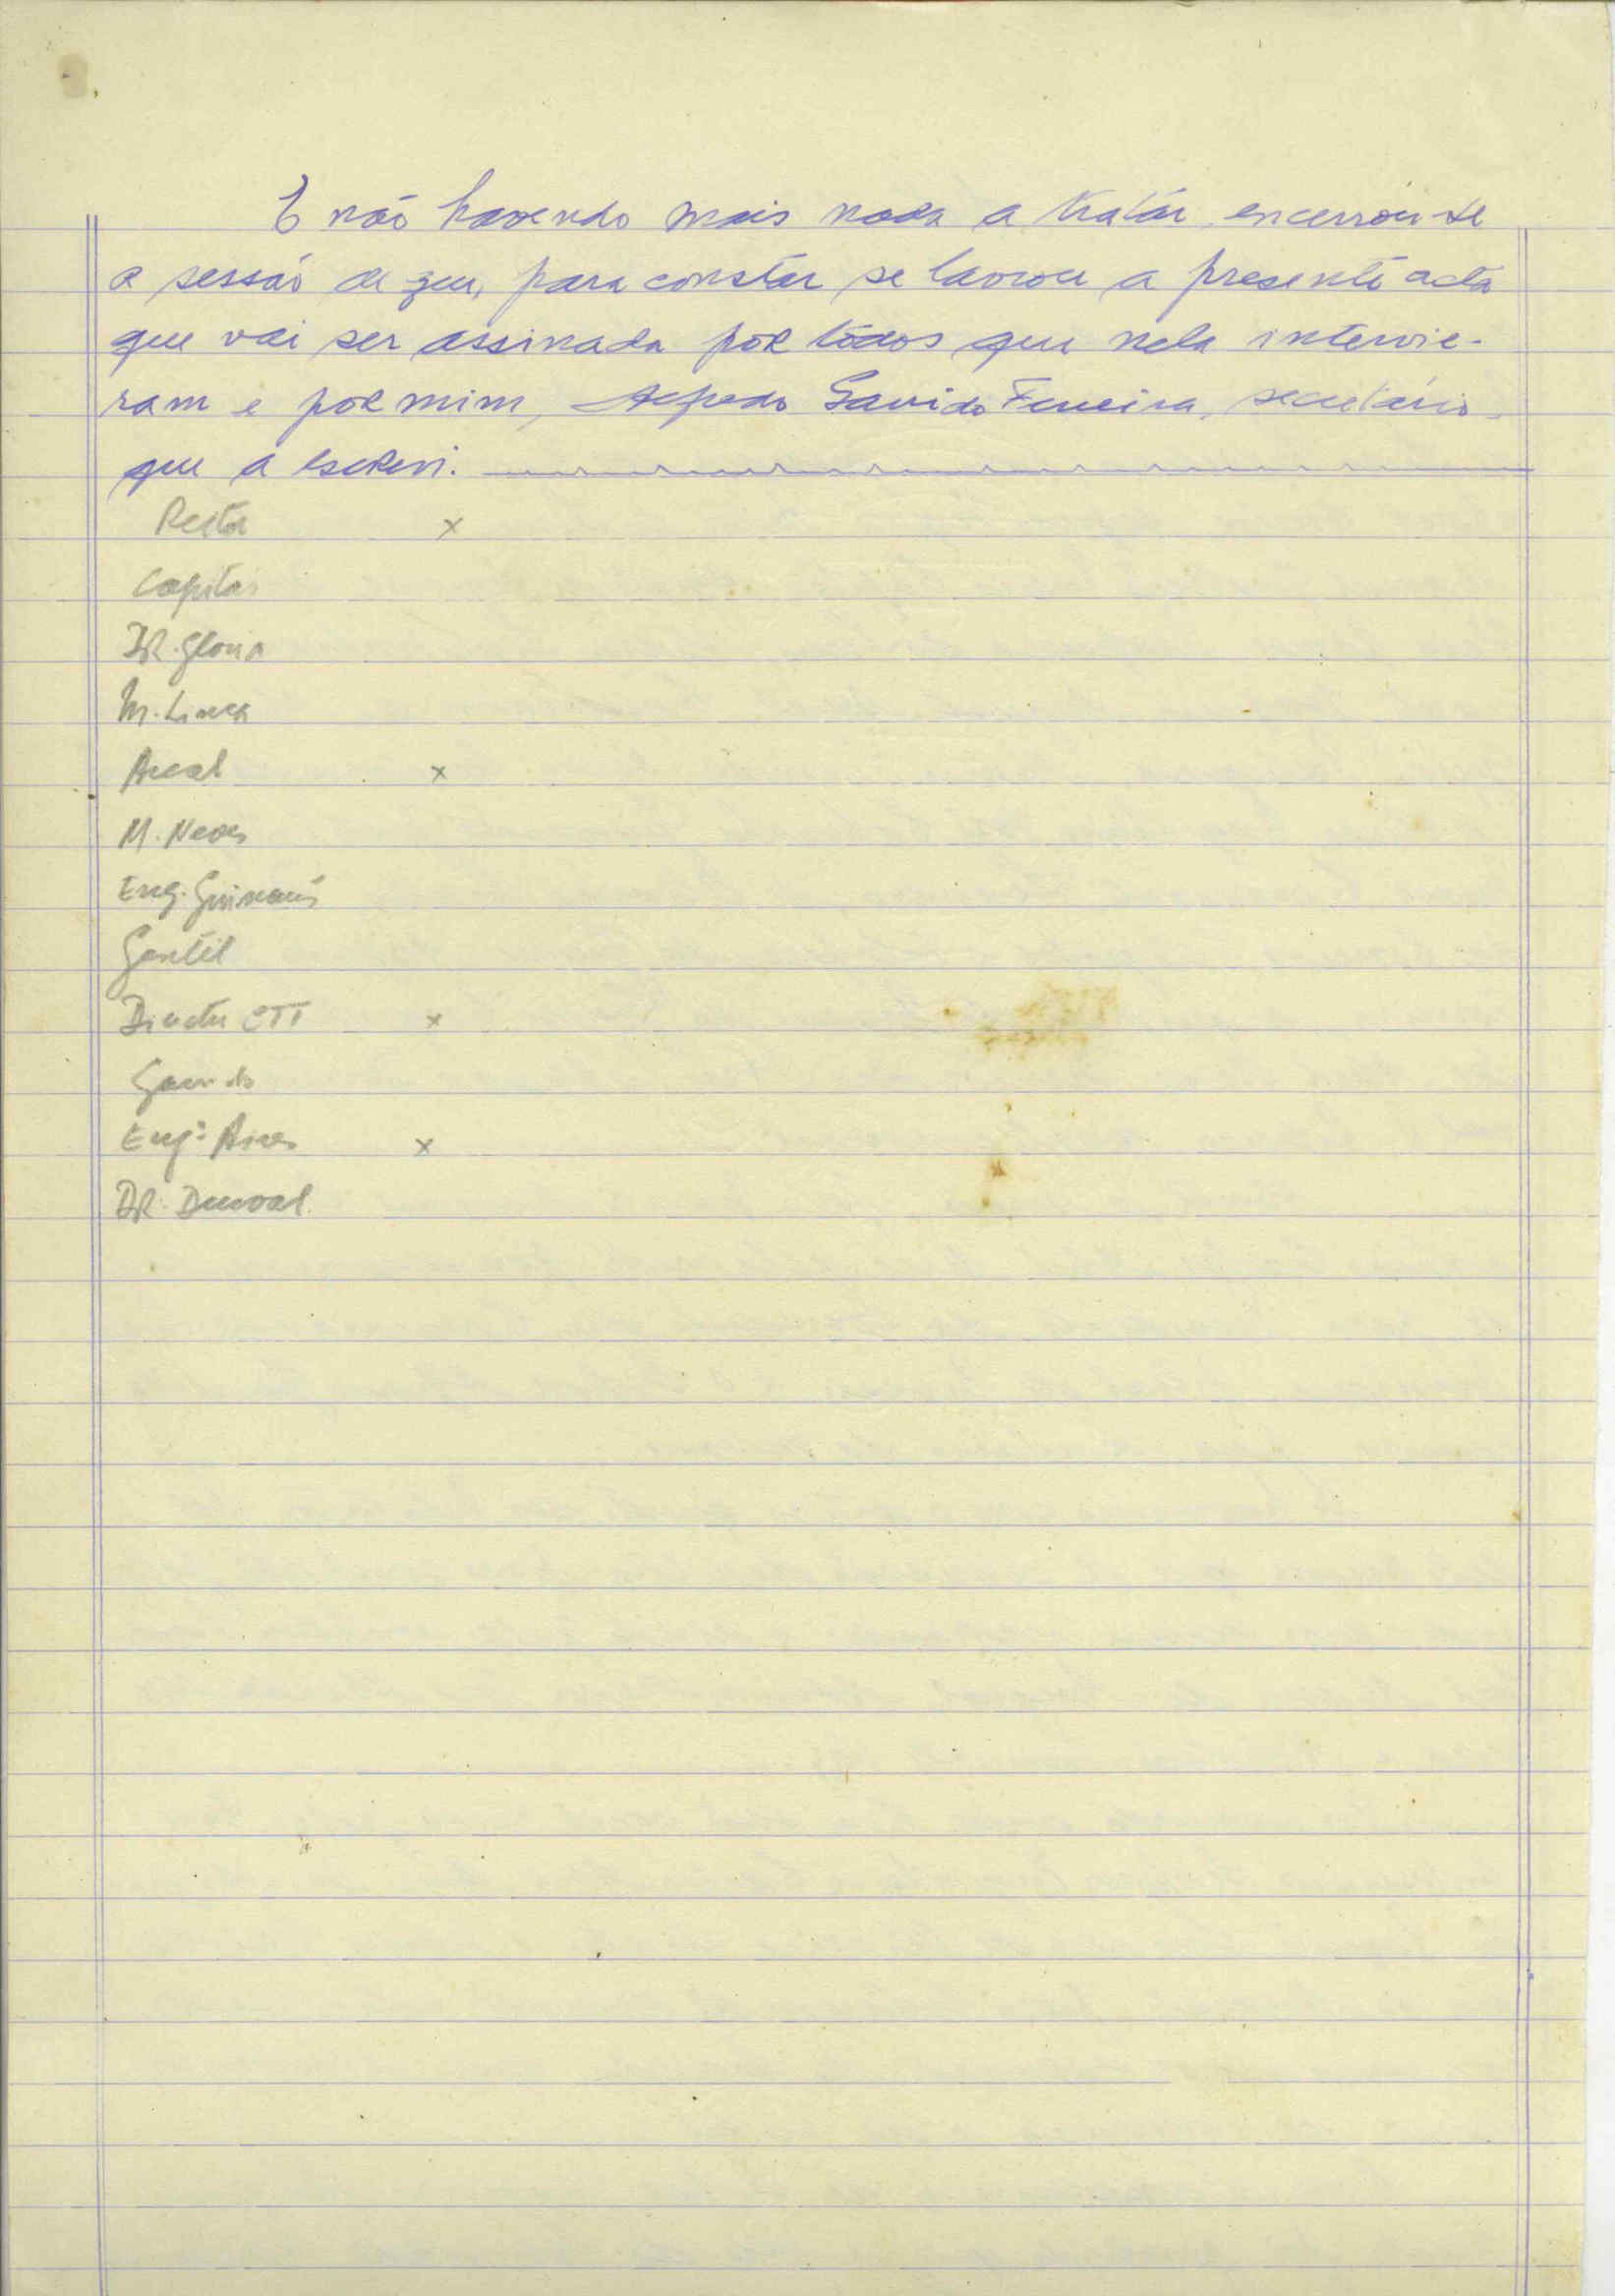 E não havendo mais nada a tratár encerrou-se
a sessão de que, para constár se lavrou a presente acta
que vai ser assinada por todos que nela intervie-
ram e por mim, Alfredo Garrido Ferreira, secretário
que a escrevi.
Reitor x
Capitão
DR. Gloria
M. Lima
x
M. Neves
Eng. Guimarães
Gentil
Director CTT x
Garrido
Engº Aires x
DR. Durval